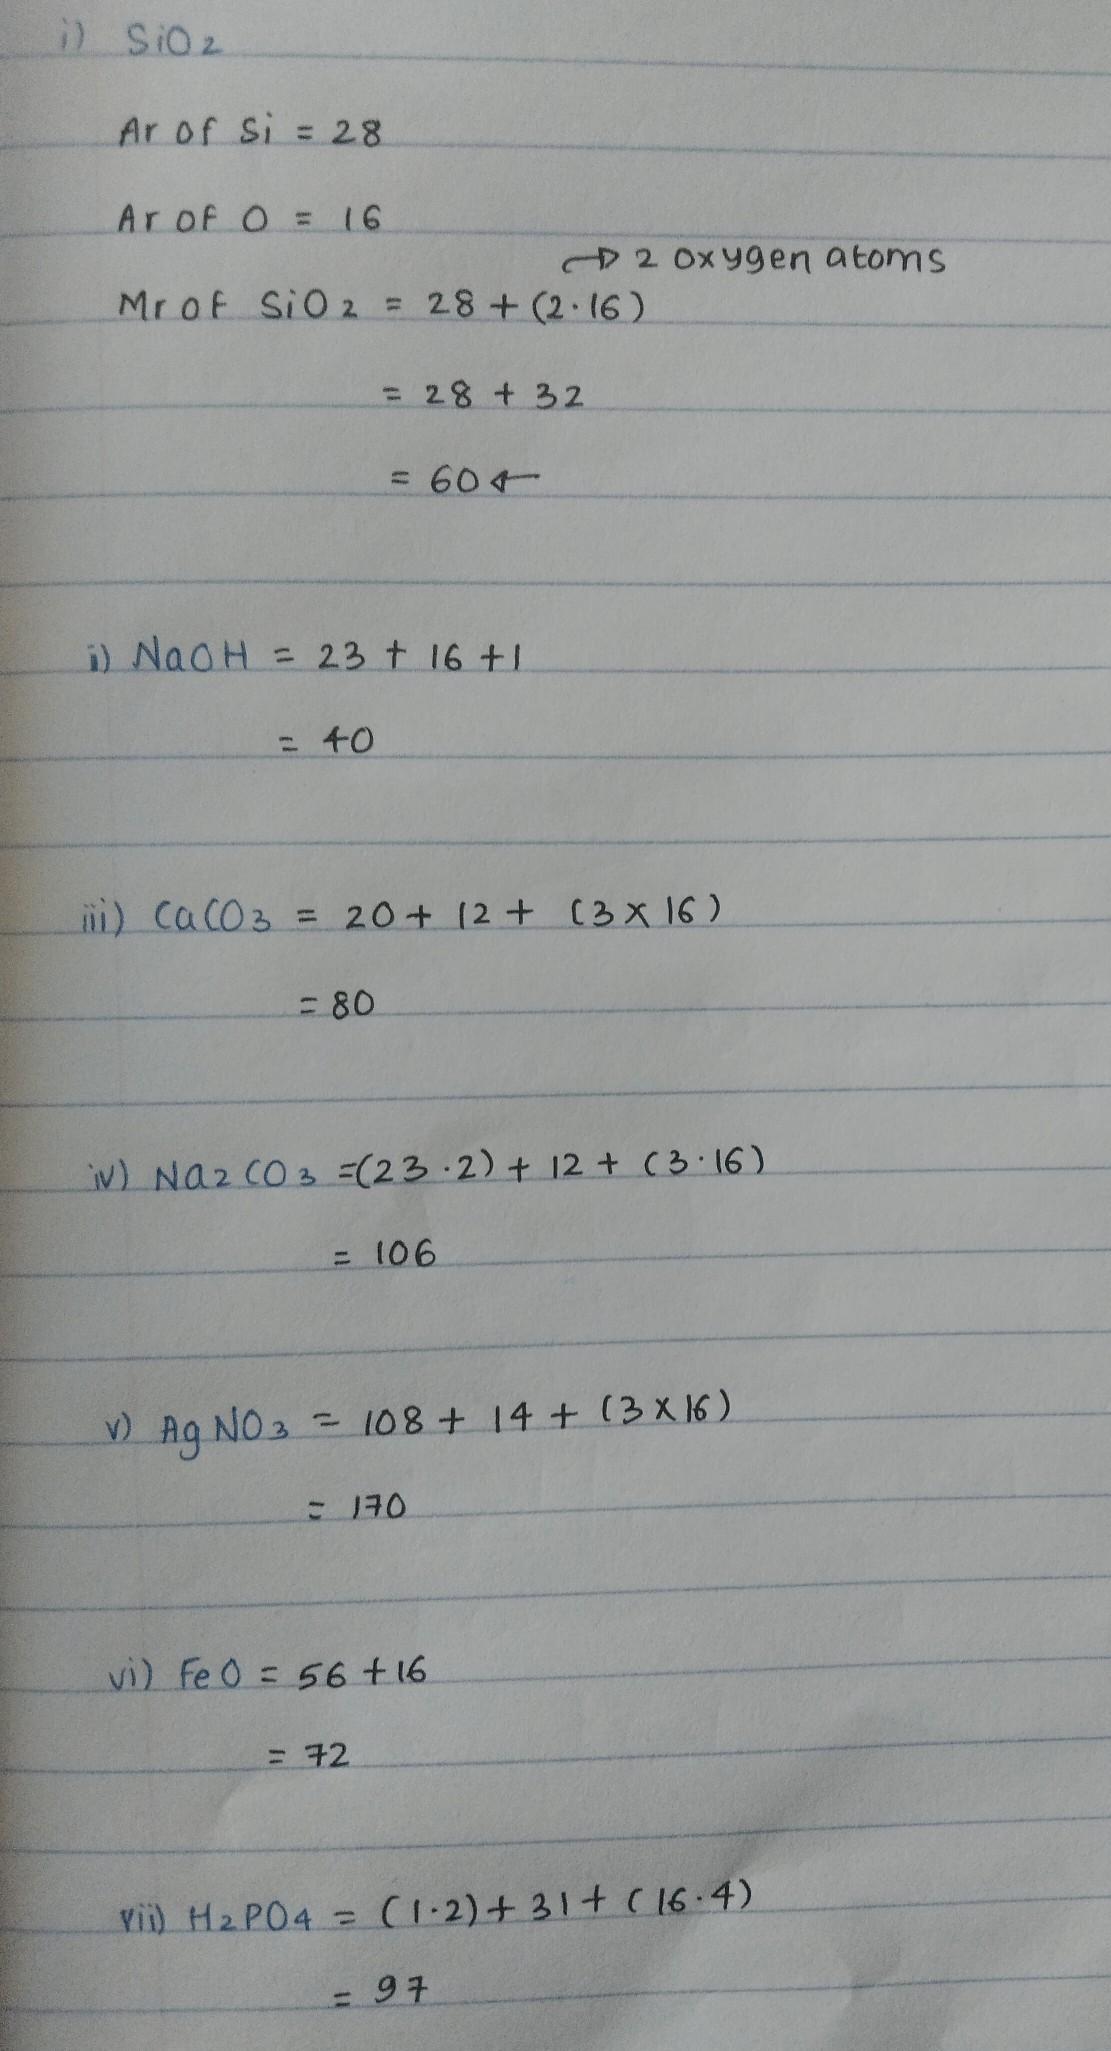 i) SiO2
Ar of Si = 28
Ar of O = 16
→ 2 oxygen atoms
Mr of SiO2 = 28 + (2·16)
= 28 + 32
= 60 ←
i) NaOH = 23 + 16 + 1
= 40
iii) CaCO3 = 20 + 12 + (3 × 16)
= 80
iv) Na2CO3 = (23·2) + 12 + (3·16)
= 106
v) AgNO3 = 108 + 14 + (3 × 16)
= 170
vi) FeO = 56 + 16
= 72
vii) H2PO4 = (1·2) + 31 + (16·4)
= 97